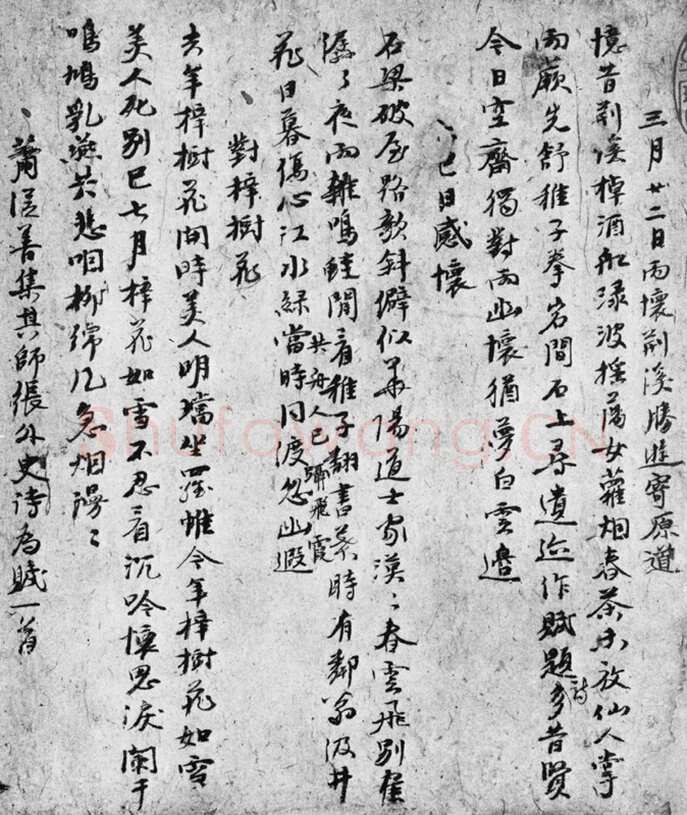 三月廿二日雨懷荊溪勝遊寄原道
憶昔荊溪棹酒船淥波搖蕩女蘿烟春茶未放仙人掌
雨蕨先舒稚子拳岩間石上尋遺迹作賦題詩多昔賢
今日空齋獨對雨幽懷猶夢白雲邊
上巳日感懷
石梁破屋路欹斜僻似華陽道士家漠漠春雲飛別崔
潺潺夜雨雜鳴蛙閒看稚子翻書葉時有鄰翁汲井
花日暮傷心江水綠當時同渡忽幽遐
共舟人已弭飛霞
對梓樹花
去年梓樹花開時美人明璫坐羅帷今年梓樹花如雪
美人死別已七月梓花如雪不忍看沉吟懷思淚闌干
鳴鳩乳燕共悲咽柳綿風急烟漫漫
蕭從善集其師張外史詩為賦一首
Shufawang.CN